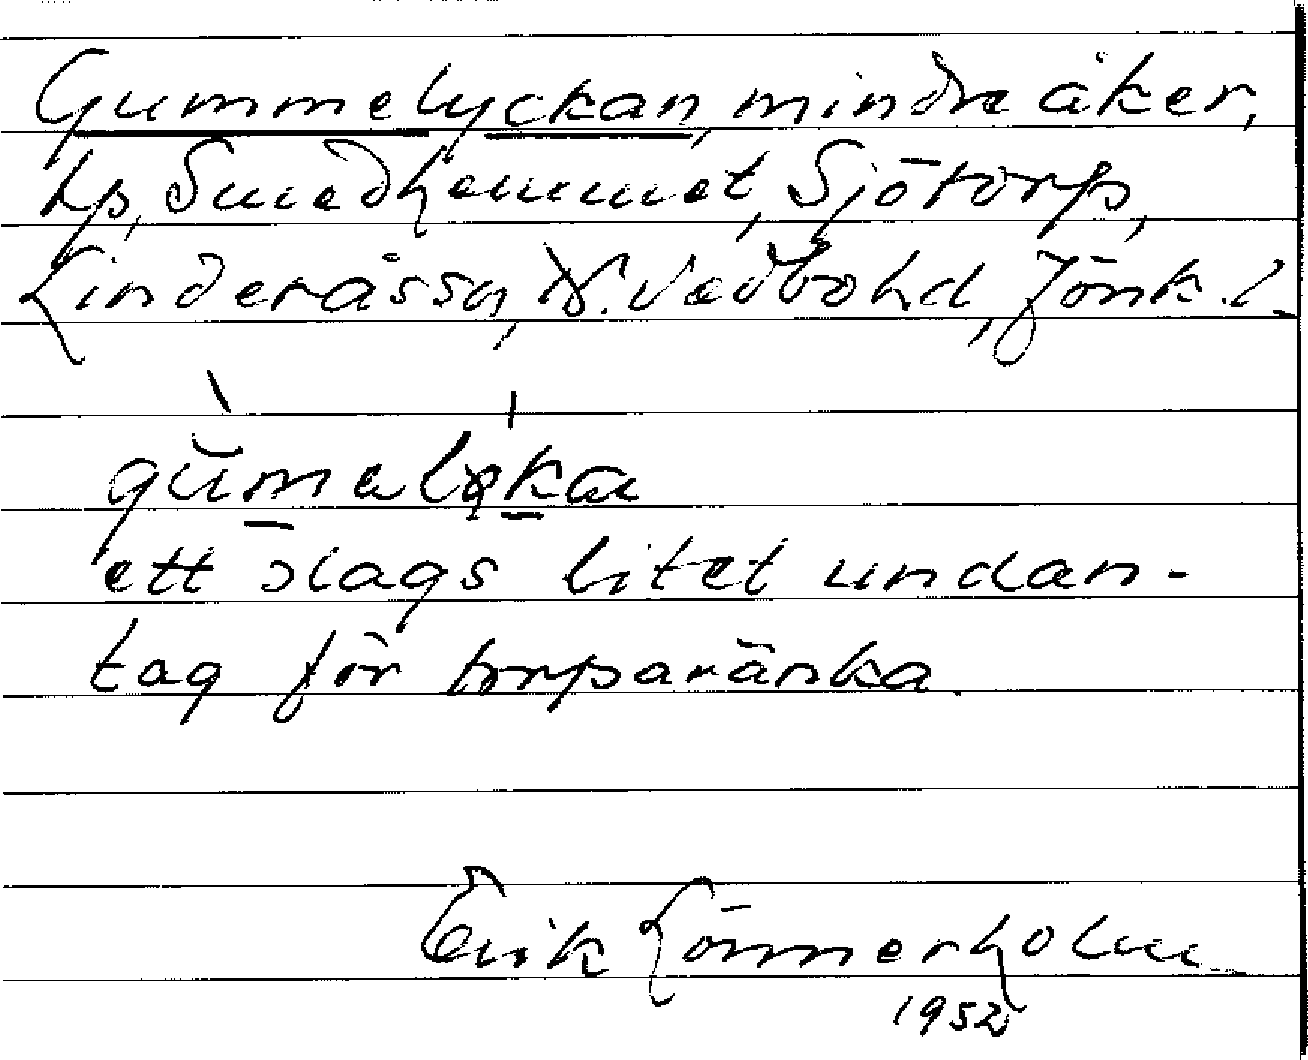 Gummelyckan, mindre åker,
tp, Smedhemmet, Sjötorp,
Linderåssn, N. Vedbohd, Jönk. l.
gŭmalykan
ett slags litet undan-
tag för torparänka.
Erik Lönnerholm
1952